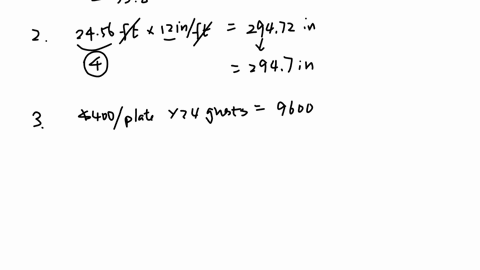 2. 24.56 ft × 12 in/ft = 294.72 in
④ = 294.7 in
3. $400/plate × 24 guests = 9600